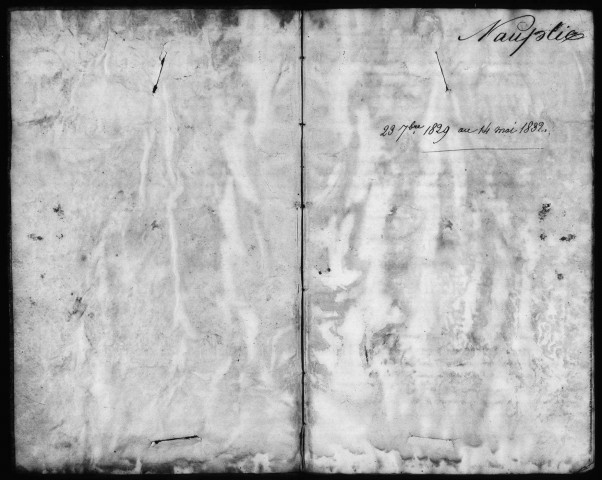 Nauplie
23 7bre 1829 au 14 mai 1832.